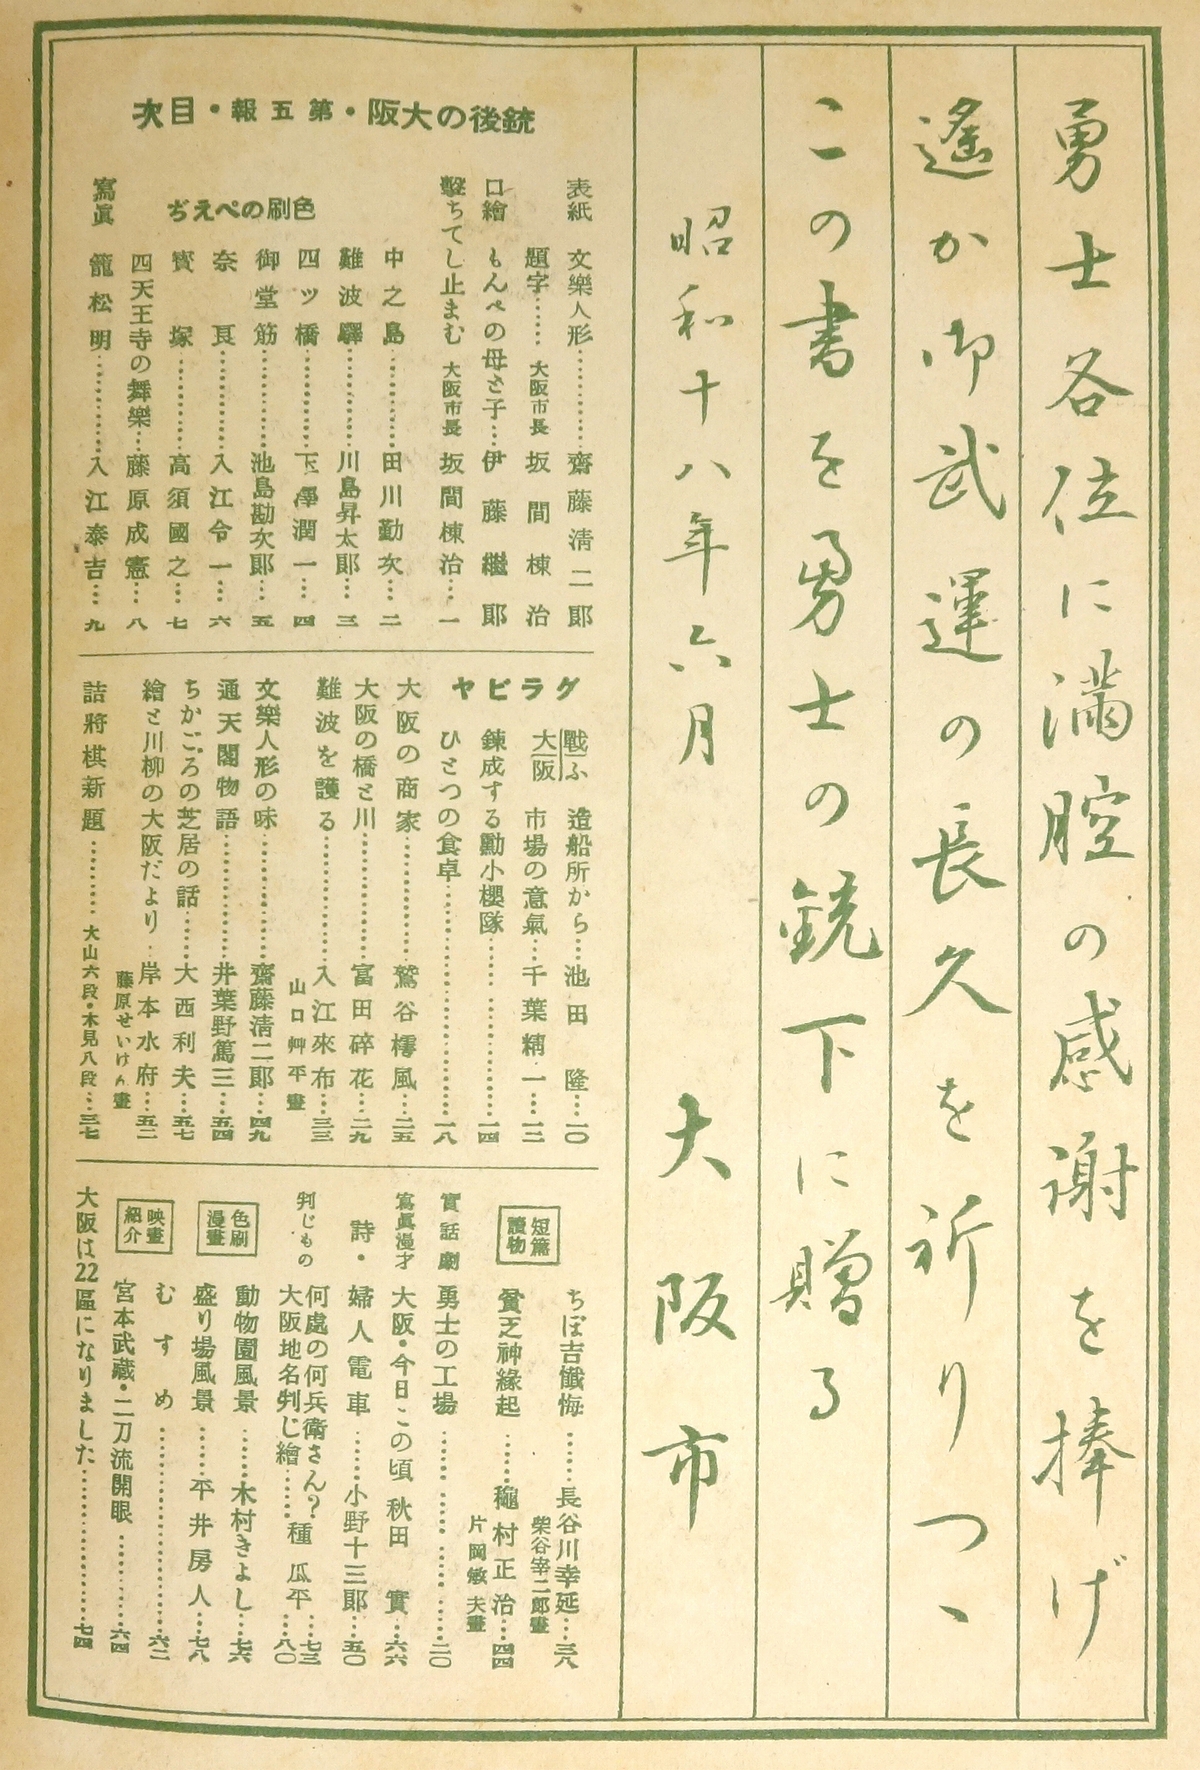 勇士各位に滿腔の感謝を捧げ
遙か御武運の長久を祈りつゝ
この書を勇士の銃下に贈る
昭和十八年六月　大阪市
銃後の大阪・第五報・目次
表紙　文樂人形…………齋藤淸二郎
題字……大阪市長　坂間棟治
口繪　もんぺの母と子…伊藤繼郎
擊ちてし止まむ　大阪市長　坂間棟治…一
色刷のぺえぢ
中之島…………田川勤次…二
難波驛…………川島昇太郎…三
四ツ橋…………下澤潤一…四
御堂筋…………池島勘次郎…五
奈良…………入江令一…六
寳塚…………高須國之…七
四天王寺の舞樂…藤原成憲…八
寫眞　籠松明…………入江泰吉…九
グラビヤ
戰ふ大阪　造船所から…池田隆…一〇
市場の意氣…千葉精一…一二
鍊成する勳小櫻隊…………一四
ひとつの食卓…………一八
大阪の商家…………鷲谷樗風…二五
大阪の橋と川…………富田碎花…二九
難波を護る…………入江來布…三三
山口艸平畫
文樂人形の味…………齋藤淸二郎…四九
通天閣物語…………井葉野篤三…五四
ちかごろの芝居の話……大西利夫…五七
繪と川柳の大阪だより…岸本水府…五二
藤原せいけん畫
詰將棋新題…………大山六段・木見八段…三七
短篇讀物
ちぼ吉懺悔……長谷川幸延…三八
柴谷宰二郎畫
貧乏神緣起……穐村正治…四四
片岡敏夫畫
實話劇　勇士の工場…………二〇
寫眞漫才　大阪・今日この頃　秋田實…六六
詩・婦人電車……小野十三郎…五〇
判じもの　何處の何兵衛さん？……七三
大阪地名判じ繪……種瓜平…八〇
色刷漫畫
動物園風景……木村きよし…七六
盛り場風景……平井房人…七八
映畫紹介
むすめ…………六二
宮本武藏・二刀流開眼…………六四
大阪は22區になりました…………七四